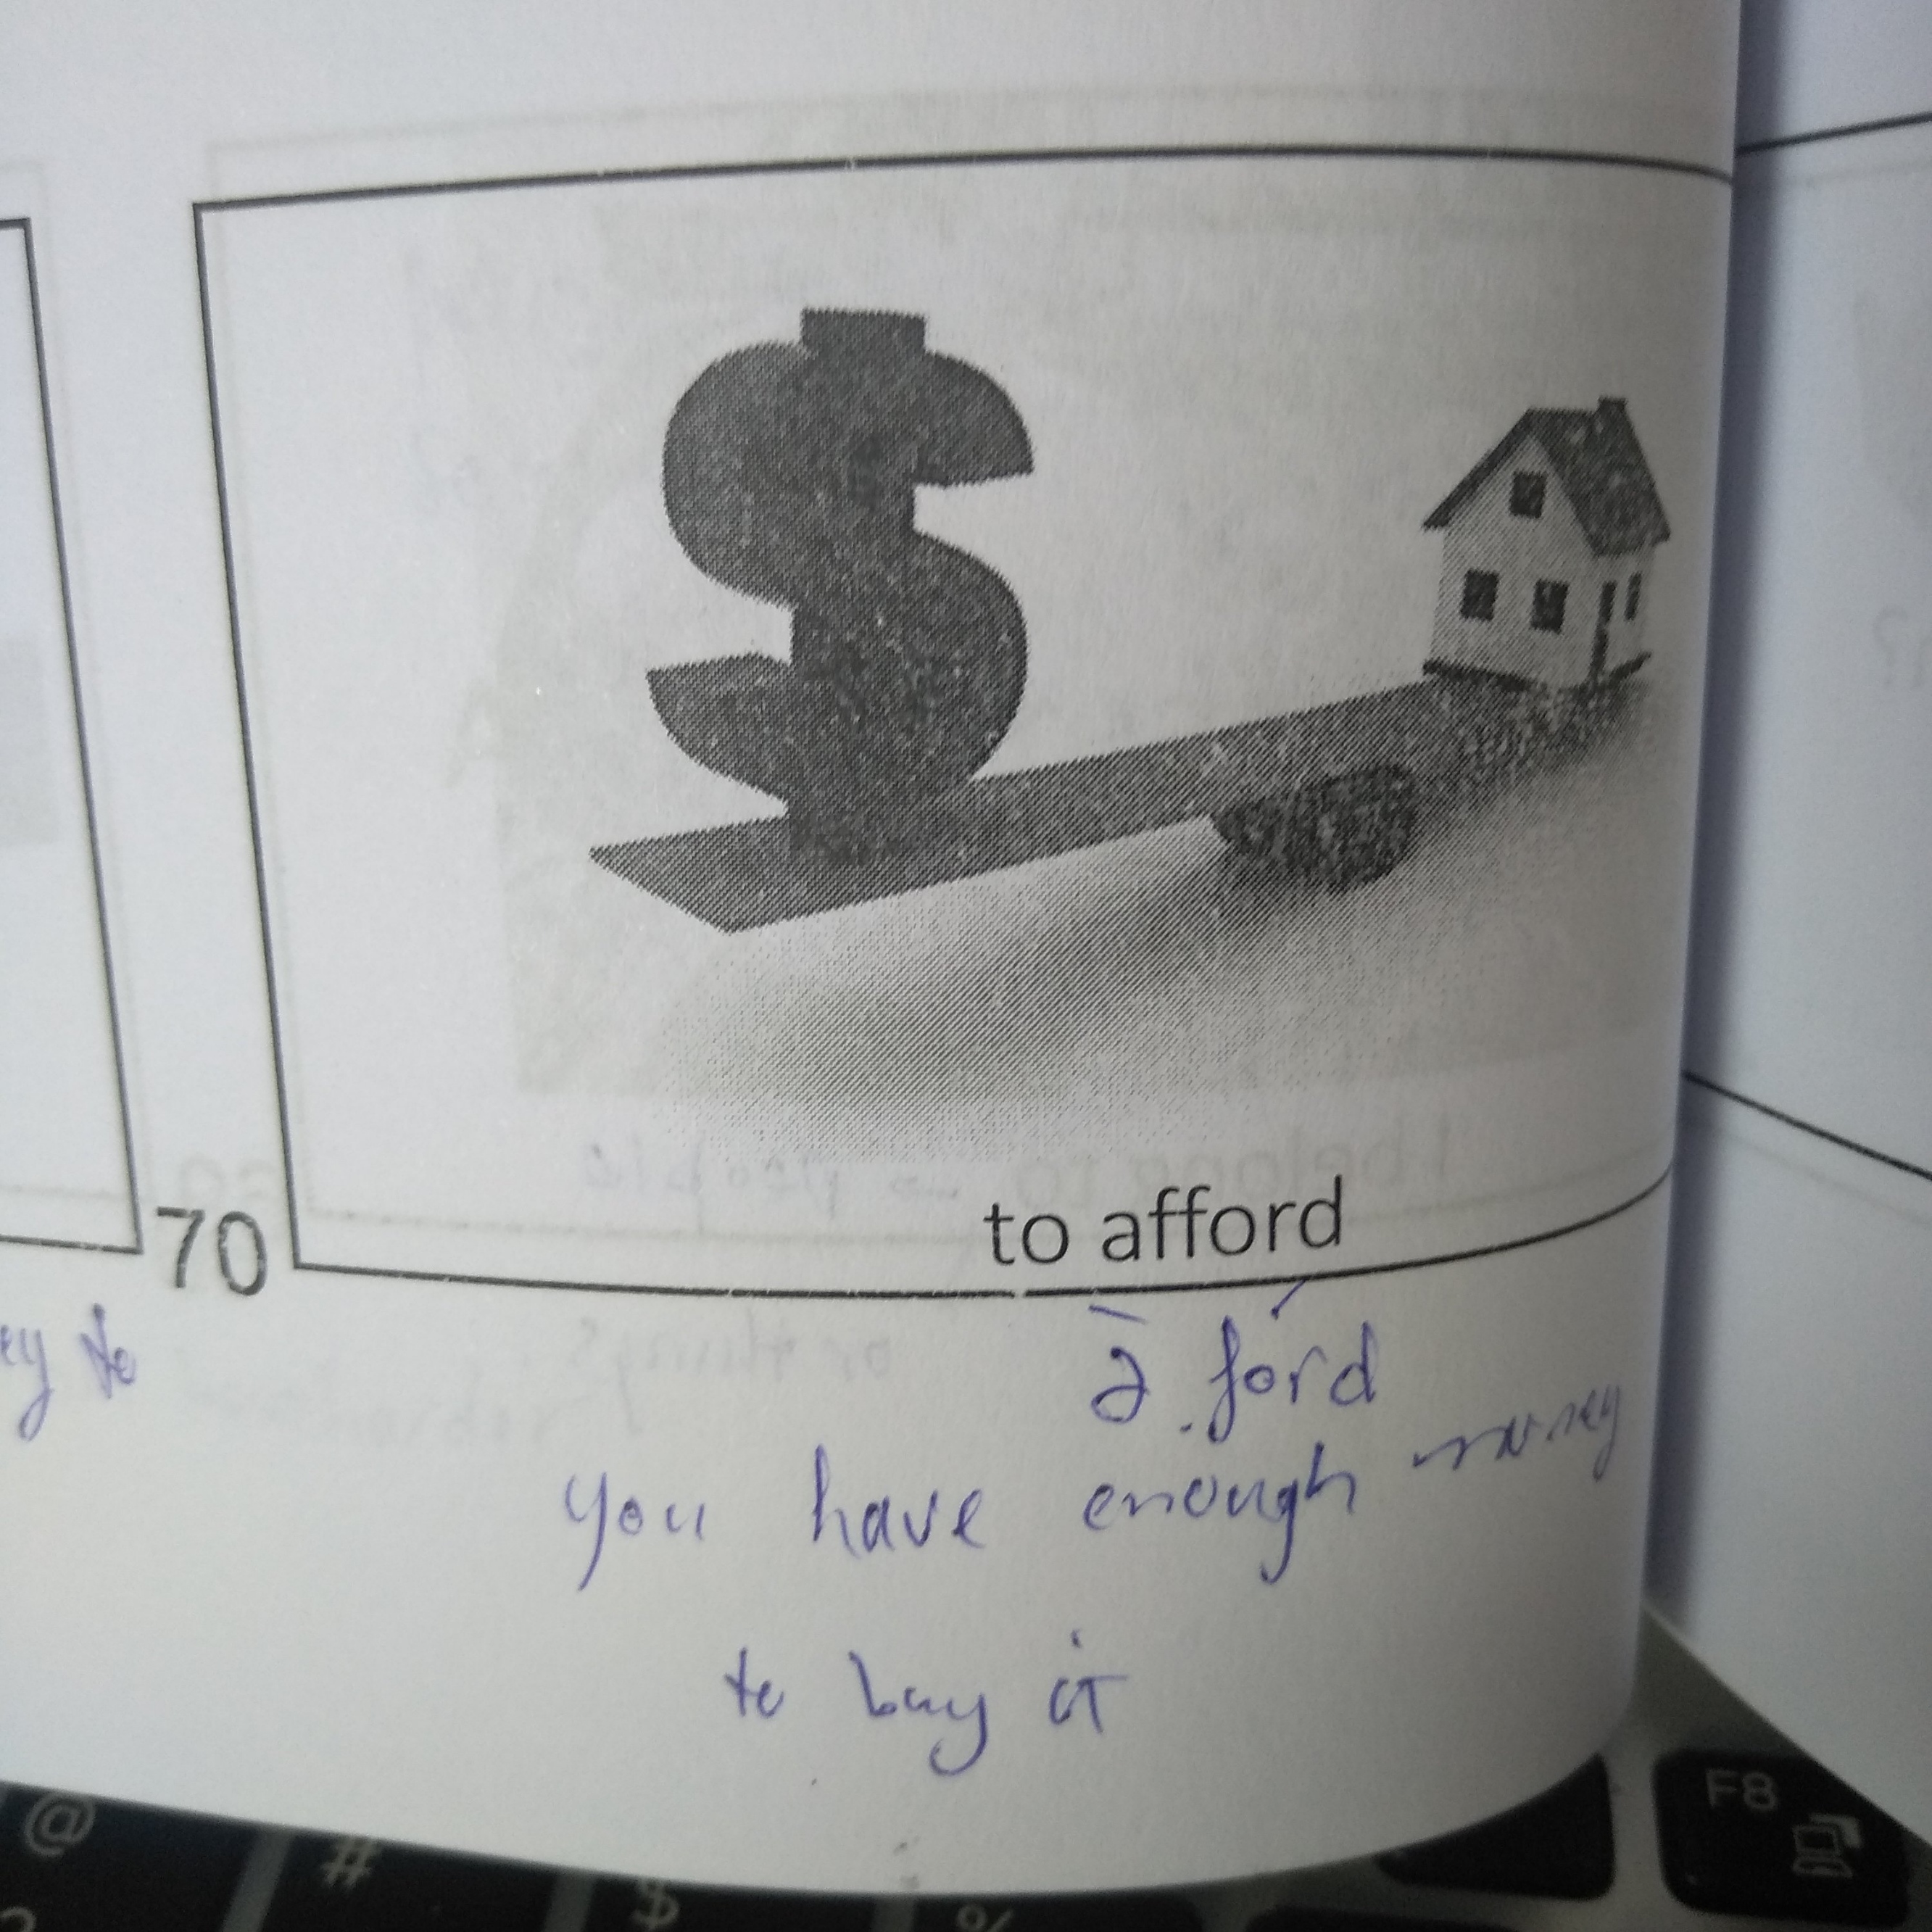 70
to afford
ey to
ə.ford
you have enough money
to buy it
@
#
$
%
F8